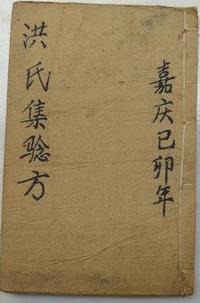 嘉庆己卯年
洪氏集验方